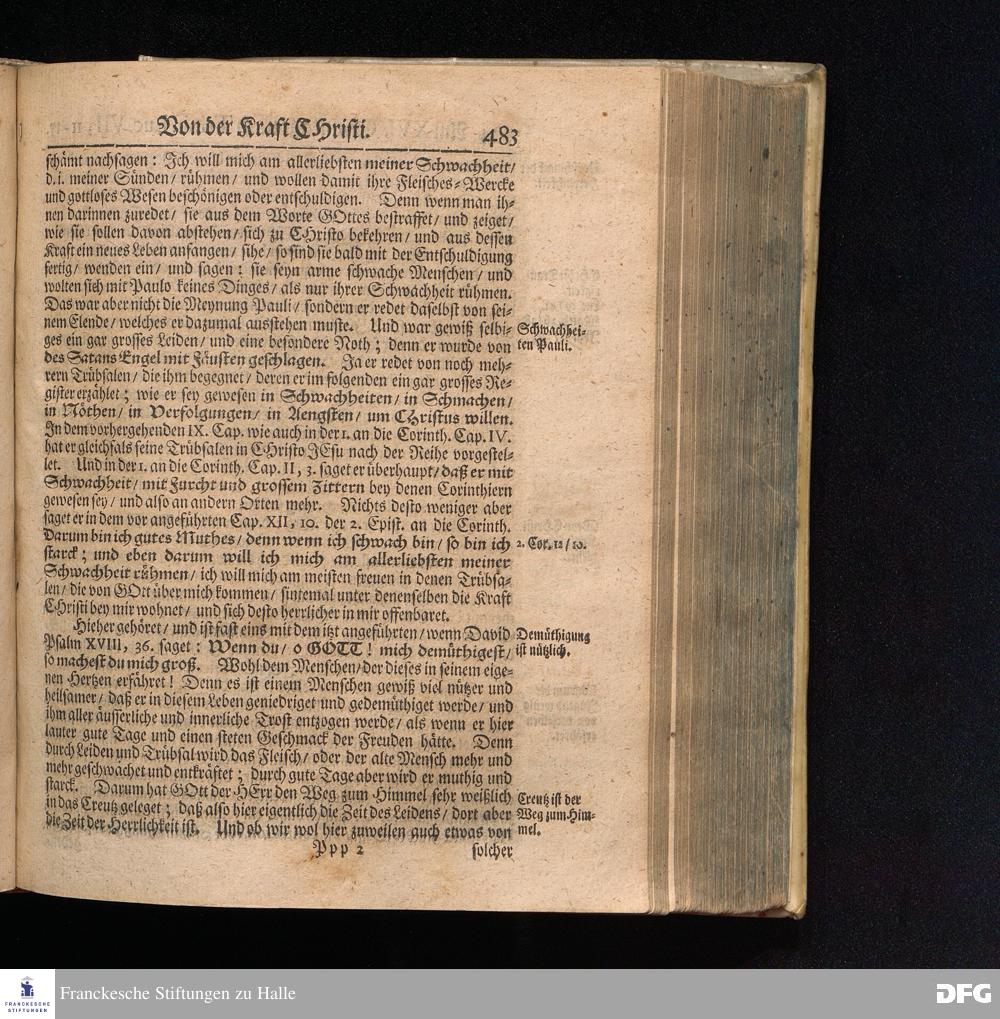 Von der Kraft CHristi.
483
schämt nachsagen: Ich will mich am allerliebsten meiner Schwachheit/
d.i. meiner Sünden/ rühmen/ und wollen damit ihre Fleisches-Wercke
und gottloses Wesen beschönigen oder entschuldigen. Denn wenn man ih-
nen darinnen zuredet/ sie aus dem Worte GOttes bestraffet/ und zeiget/
wie sie sollen davon abstehen/ sich zu CHristo bekehren/ und aus dessen
Kraft ein neues Leben anfangen/ sihe/ so sind sie bald mit der Entschuldigung
fertig/ wenden ein/ und sagen: sie seyn arme schwache Menschen/ und
wolten sich mit Paulo keines Dinges/ als nur ihrer Schwachheit rühmen.
Das war aber nicht die Meynung Pauli/ sondern er redet daselbst von sei-
nem Elende/ welches er dazumal ausstehen muste. Und war gewiß selbi-
ges ein gar grosses Leiden/ und eine besondere Noth; denn er wurde von
des Satans Engel mit Fäusten geschlagen. Ja er redet von noch meh-
rern Trübsalen/ die ihm begegnet/ deren er im folgenden ein gar grosses Re-
gister erzählet; wie er sey gewesen in Schwachheiten/ in Schmachen/
in Nöthen/ in Verfolgungen/ in Aengsten/ um CHristus willen.
In dem vorhergehenden IX. Cap. wie auch in der 1. an die Corinth. Cap. IV.
hat er gleichfals seine Trübsalen in CHristo JEsu nach der Reihe vorgestel-
let. Und in der 1. an die Corinth. Cap. II, 3. saget er überhaupt/ daß er mit
Schwachheit/ mit Furcht und grossem Zittern bey denen Corinthiern
gewesen sey/ und also an andern Orten mehr. Nichts desto weniger aber
saget er in dem vor angeführten Cap. XII, 10. der 2. Epist. an die Corinth.
Darum bin ich gutes Muthes/ denn wenn ich schwach bin/ so bin ich
starck; und eben darum will ich mich am allerliebsten meiner
Schwachheit rühmen/ ich will mich am meisten freuen in denen Trübsa-
len/ die von GOtt über mich kommen/ sintemal unter denenselben die Kraft
CHristi bey mir wohnet/ und sich desto herrlicher in mir offenbaret.
Hieher gehöret/ und ist fast eins mit dem itzt angeführten/ wenn David
Psalm XVIII, 36. saget: Wenn du/ o GOTT! mich demüthigest/
so machest du mich groß. Wohl dem Menschen/ der dieses in seinem eige-
nen Hertzen erfähret! Denn es ist einem Menschen gewiß viel nützer und
heilsamer/ daß er in diesem Leben geniedriget und gedemüthiget werde/ und
ihm aller äusserliche und innerliche Trost entzogen werde/ als wenn er hier
lauter gute Tage und einen steten Geschmack der Freuden hätte. Denn
durch Leiden und Trübsal wird das Fleisch/ oder der alte Mensch mehr und
mehr geschwächet und entkräftet; durch gute Tage aber wird er muthig und
starck. Darum hat GOtt der HErr den Weg zum Himmel sehr weißlich
in das Creutz geleget; daß also hier eigentlich die Zeit des Leidens/ dort aber
die Zeit der Herrlichkeit ist. Und ob wir wol hier zuweilen auch etwas von
Ppp 2
solcher
Schwachhei-
ten Pauli.
2. Cor. 12/10.
Demüthigung
ist nützlich.
Creutz ist der
Weg zum Him-
mel.
FRANCKESCHE
STIFTUNGEN
Franckesche Stiftungen zu Halle
DFG